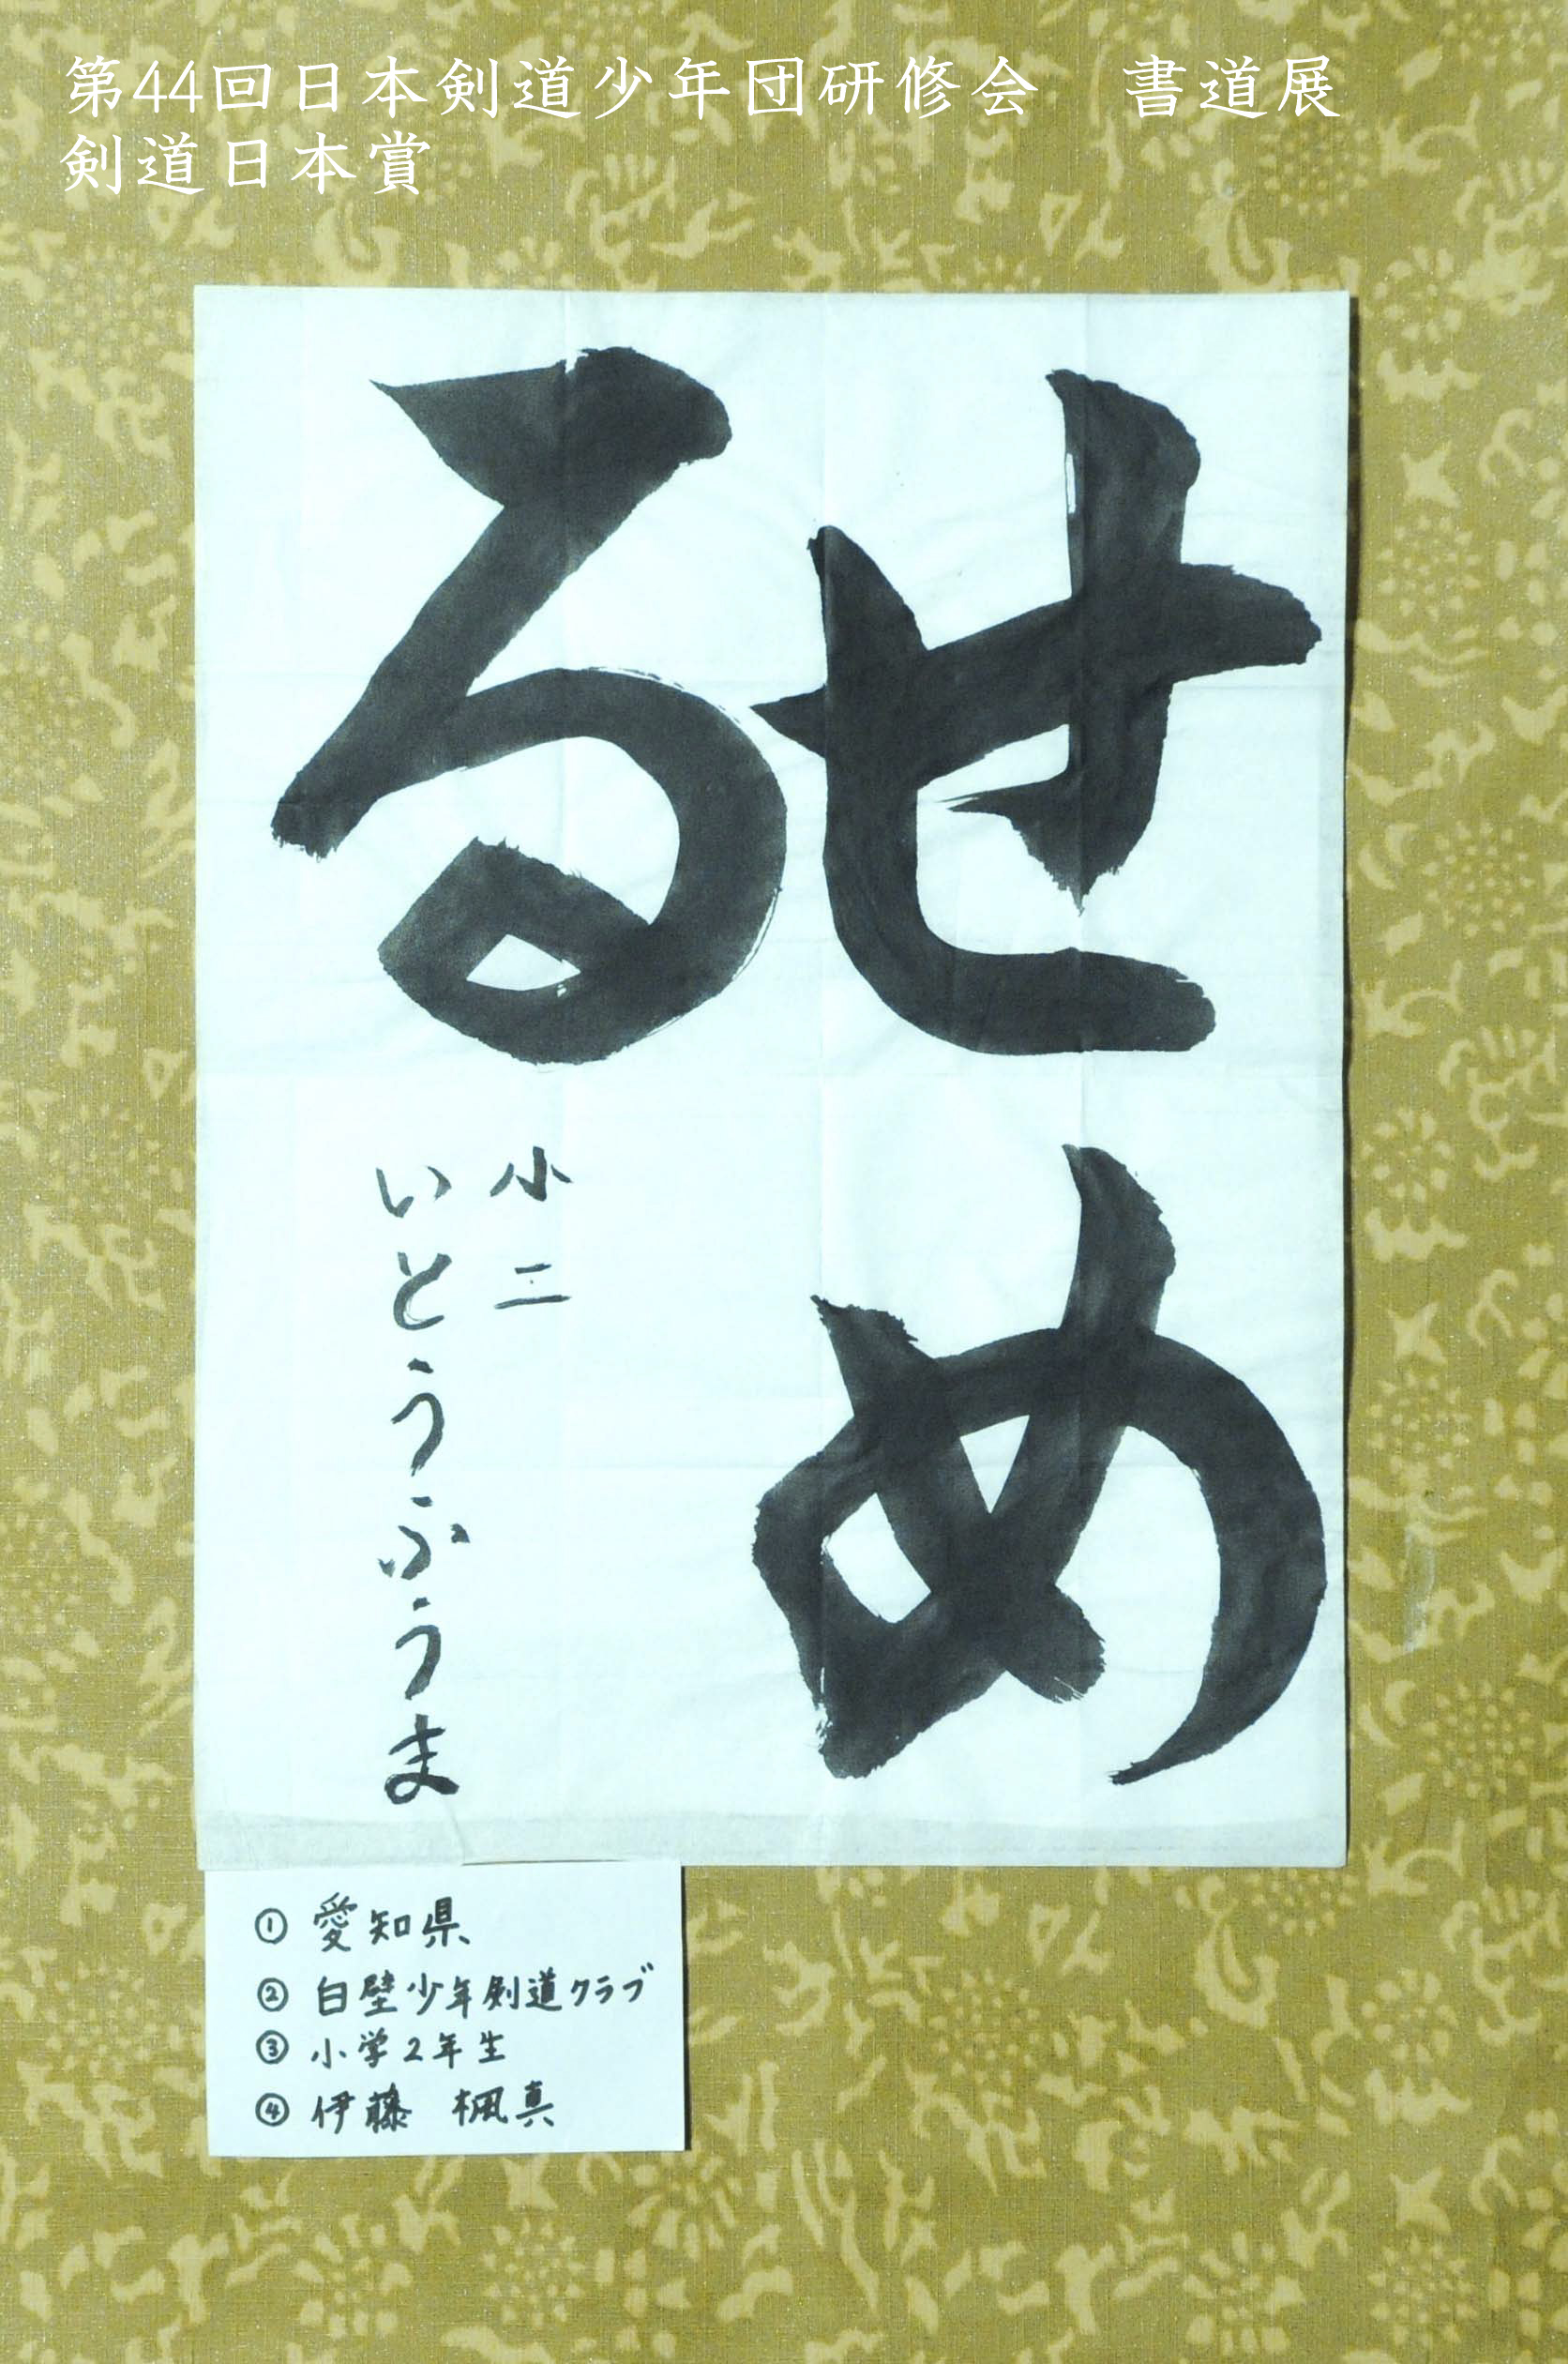 第44回日本剣道少年団研修会　書道展
剣道日本賞
せめ
る
小二
いとうふうま
① 愛知県
② 白壁少年剣道クラブ
③ 小学2年生
④ 伊藤 楓真